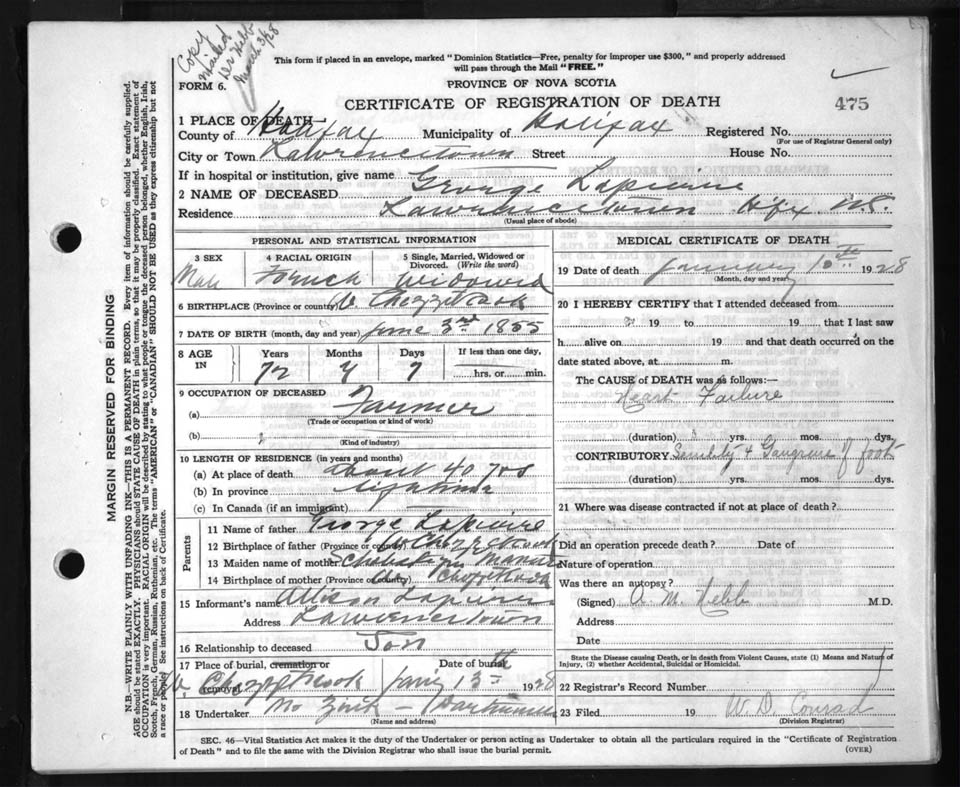 Copy
mailed
Dr Hebb
March 3/28
This form if placed in an envelope, marked "Dominion Statistics—Free, penalty for improper use $300," and properly addressed
will pass through the Mail "FREE."
FORM 6.
PROVINCE OF NOVA SCOTIA
CERTIFICATE OF REGISTRATION OF DEATH
475
1 PLACE OF DEATH—
County of Halifax Municipality of Halifax Registered No.
(For use of Registrar General only)
City or Town Lawrencetown Street House No.
If in hospital or institution, give name
2 NAME OF DECEASED George Lapierre
Residence Lawrencetown Hfx. N.S.
(Usual place of abode)
PERSONAL AND STATISTICAL INFORMATION
3 SEX
Male
4 RACIAL ORIGIN
French
5 Single, Married, Widowed or
Divorced. (Write the word)
Widowed
6 BIRTHPLACE (Province or country) W. Chezzetcook
7 DATE OF BIRTH (month, day and year) June 3rd 1855
8 AGE
IN
Years
Months
Days
If less than one day,
72
7
7
hrs. or min.
9 OCCUPATION OF DECEASED
(a) Farmer
(Trade or occupation or kind of work)
(b)
(Kind of industry)
10 LENGTH OF RESIDENCE (in years and months)
(a) At place of death about 40 yrs
(b) In province lifetime
(c) In Canada (if an immigrant)
Parents
11 Name of father George Lapierre
12 Birthplace of father (Province or country) W. Chezzetcook
13 Maiden name of mother
14 Birthplace of mother (Province or country) W. Chezzetcook
15 Informant's name Allison Lapierre
Address Lawrencetown
16 Relationship to deceased Son
17 Place of burial, cremation or
removal W. Chezzetcook
Date of burial
Jany 13th 1928
18 Undertaker Mr Zink — Dartmouth
(Name and address)
MEDICAL CERTIFICATE OF DEATH
19 Date of death January 10th 1928
(Month, day and year)
20 I HEREBY CERTIFY that I attended deceased from
19 to 19 that I last saw
h alive on 19 and that death occurred on the
date stated above, at m.
The CAUSE of DEATH was as follows:—
Heart Failure
(duration) yrs. mos. dys.
CONTRIBUTORY Senility & Gangrene of foot
(duration) yrs. mos. dys.
21 Where was disease contracted if not at place of death?
Did an operation precede death? Date of
Nature of operation
Was there an autopsy?
(Signed) A. M. Hebb M.D.
Address
Date
State the Disease causing Death, or in death from Violent Causes, state (1) Means and Nature of
Injury, (2) whether Accidental, Suicidal or Homicidal.
22 Registrar's Record Number
23 Filed 19 W. D. Conrad
(Division Registrar)
SEC. 46—Vital Statistics Act makes it the duty of the Undertaker or person acting as Undertaker to obtain all the particulars required in the "Certificate of Registration
of Death" and to file the same with the Division Registrar who shall issue the burial permit.
(OVER)
MARGIN RESERVED FOR BINDING
N.B.—WRITE PLAINLY WITH UNFADING INK—THIS IS A PERMANENT RECORD. Every item of information should be carefully supplied.
AGE should be stated EXACTLY. PHYSICIANS should STATE CAUSE OF DEATH in plain terms, so that it may be properly classified. Exact statement of
OCCUPATION is very important. RACIAL ORIGIN will be described by stating to what people or tongue the deceased person belonged, whether English, Irish,
Scotch, French, German, Russian, Ruthenian, etc. The terms "AMERICAN" or "CANADIAN" SHOULD NOT BE USED as they express citizenship but not
a race or people. See instructions on back of Certificate.